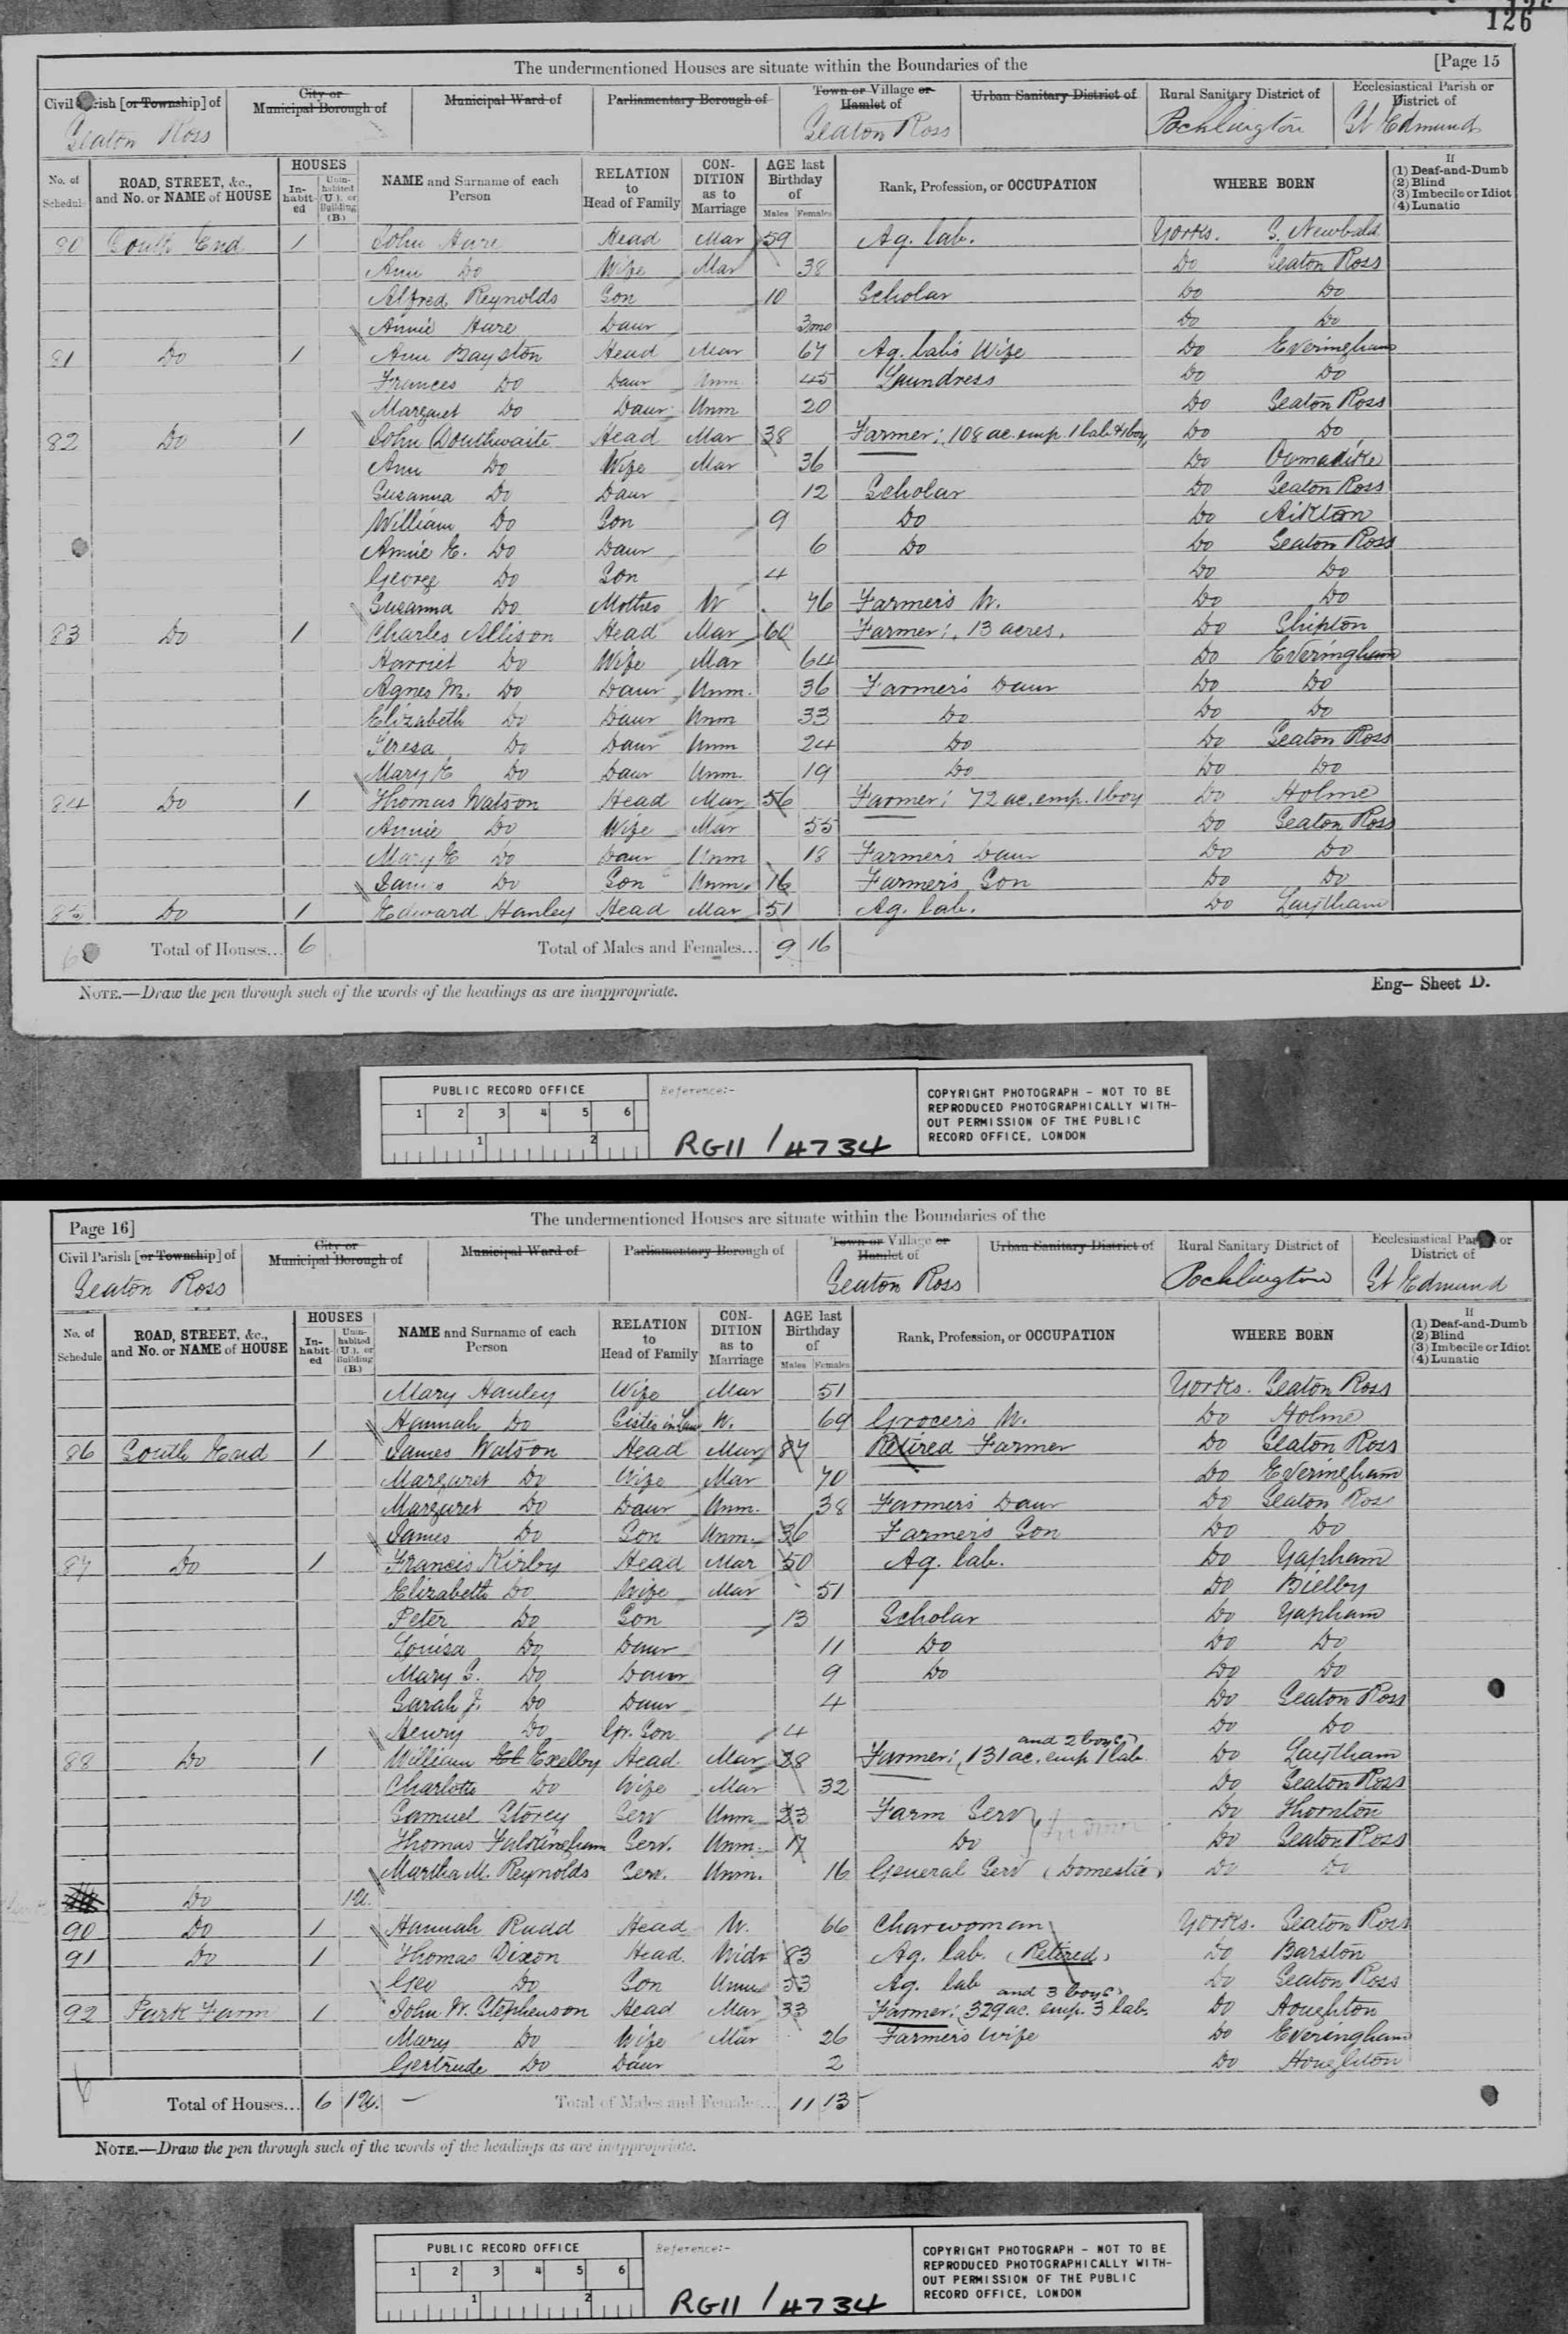 126
The undermentioned Houses are situate within the Boundaries of the [Page 15
Civil Parish [or Township] of City or Municipal Borough of Municipal Ward of Parliamentary Borough of Town or Village or Hamlet of Urban Sanitary District of Rural Sanitary District of Ecclesiastical Parish or District of
Seaton Ross Seaton Ross Pocklington St Edmund
No. of Schedule ROAD, STREET, &c., and No. or NAME of HOUSE HOUSES In-habit-ed Unin-habited (U.), or Building (B.) NAME and Surname of each Person RELATION to Head of Family CON-DITION as to Marriage AGE last Birthday of Males Females Rank, Profession, or OCCUPATION WHERE BORN If (1) Deaf-and-Dumb (2) Blind (3) Imbecile or Idiot (4) Lunatic
80 South End 1 John Hare Head Mar 59 Ag. lab. Yorks. S. Newbald
Ann Do Wife Mar 38 Do Seaton Ross
Alfred Reynolds Son 10 Scholar Do Do
Annie Hare Daur 3mo Do Do
81 Do 1 Ann Bayston Head Mar 67 Ag. lab's Wife Do Everingham
Frances Do Daur Unm 45 Laundress Do Do
Margaret Do Daur Unm 20 Do Seaton Ross
82 Do 1 John Douthwaite Head Mar 38 Farmer; (108 ac. emp. 1 lab & 1 boy) Do Do
Ann Do Wife Mar 36 Do
Susanna Do Daur 12 Scholar Do Seaton Ross
William Do Son 9 Do Do
Annie E. Do Daur 6 Do Do Seaton Ross
George Do Son 4 Do Do
Susanna Do Mother W 76 Farmer's W. Do Do
83 Do 1 Charles Allison Head Mar 60 Farmer; 13 acres. Do Shipton
Harriet Do Wife Mar 64 Do Everingham
Agnes M. Do Daur Unm. 36 Farmer's Daur Do Do
Elizabeth Do Daur Unm 33 Do Do Do
Teresa Do Daur Unm 24 Do Do Seaton Ross
Mary E Do Daur Unm. 19 Do Do Do
84 Do 1 Thomas Watson Head Mar 56 Farmer; 72 ac. emp. 1 boy Do Holme
Annie Do Wife Mar 55 Do Seaton Ross
Mary E Do Daur Unm 18 Farmer's Daur Do Do
James Do Son Unm. 16 Farmer's Son Do Do
85 Do 1 Edward Hanley Head Mar 51 Ag. lab. Do Laytham
Total of Houses... 6 Total of Males and Females... 9 16
NOTE.—Draw the pen through such of the words of the headings as are inappropriate. Eng— Sheet D.
PUBLIC RECORD OFFICE Reference:- COPYRIGHT PHOTOGRAPH - NOT TO BE
1 2 3 4 5 6 REPRODUCED PHOTOGRAPHICALLY WITH-
1 2 OUT PERMISSION OF THE PUBLIC
RG11/4734 RECORD OFFICE, LONDON
Page 16] The undermentioned Houses are situate within the Boundaries of the
Civil Parish [or Township] of City or Municipal Borough of Municipal Ward of Parliamentary Borough of Town or Village or Hamlet of Urban Sanitary District of Rural Sanitary District of Ecclesiastical Parish or District of
Seaton Ross Seaton Ross Pocklington St Edmund
No. of Schedule ROAD, STREET, &c., and No. or NAME of HOUSE HOUSES In-habit-ed Unin-habited (U.), or Building (B.) NAME and Surname of each Person RELATION to Head of Family CON-DITION as to Marriage AGE last Birthday of Males Females Rank, Profession, or OCCUPATION WHERE BORN If (1) Deaf-and-Dumb (2) Blind (3) Imbecile or Idiot (4) Lunatic
Mary Hanley Wife Mar 51 Yorks. Seaton Ross
Hannah Do Sister in Law W. 69 Grocer's W. Do Holme
86 South End 1 James Watson Head Mar 87 Retired Farmer Do Seaton Ross
Margaret Do Wife Mar 70 Do Everingham
Margaret Do Daur Unm. 38 Farmer's Daur Do Seaton Ross
James Do Son Unm. 36 Farmer's Son Do Do
87 Do 1 Francis Kirby Head Mar 50 Ag. lab. Do Yapham
Elizabeth Do Wife Mar 51 Do Bielby
Peter Do Son 13 Scholar Do Yapham
Louisa Do Daur 11 Do Do Do
Mary S. Do Daur 9 Do Do Do
Sarah J. Do Daur 4 Do Seaton Ross
Henry Do Gr. Son 4 Do Do
88 Do 1 William Exelby Head Mar 28 Farmer; (131 ac. emp 1 lab and 2 boys) Do Laytham
Charlotte Do Wife Mar 32 Do Seaton Ross
Samuel Storey Serv Unm 23 Farm Serv Indoor Do Thornton
Thomas Falkingham Serv. Unm. 17 Do Do Seaton Ross
Martha M. Reynolds Serv. Unm. 16 General Serv (Domestic) Do Do
Do 1 U.
90 Do 1 Hannah Rudd Head W. 66 Charwoman Yorks. Seaton Ross
91 Do 1 Thomas Dixon Head Widr 83 Ag. lab. (Retired) Do Barston
Geo Do Son Unm 53 Ag. lab Do Seaton Ross
92 Park Farm 1 John W. Stephenson Head Mar 33 Farmer; (329 ac. emp. 3 lab. and 3 boys) Do Houghton
Mary Do Wife Mar 26 Farmer's Wife Do Everingham
Gertrude Do Daur 2 Do Houghton
Total of Houses... 6 1 U. Total of Males and Females... 11 13
NOTE.—Draw the pen through such of the words of the headings as are inappropriate.
PUBLIC RECORD OFFICE Reference:- COPYRIGHT PHOTOGRAPH - NOT TO BE
1 2 3 4 5 6 REPRODUCED PHOTOGRAPHICALLY WITH-
1 2 OUT PERMISSION OF THE PUBLIC
RG11/4734 RECORD OFFICE, LONDON